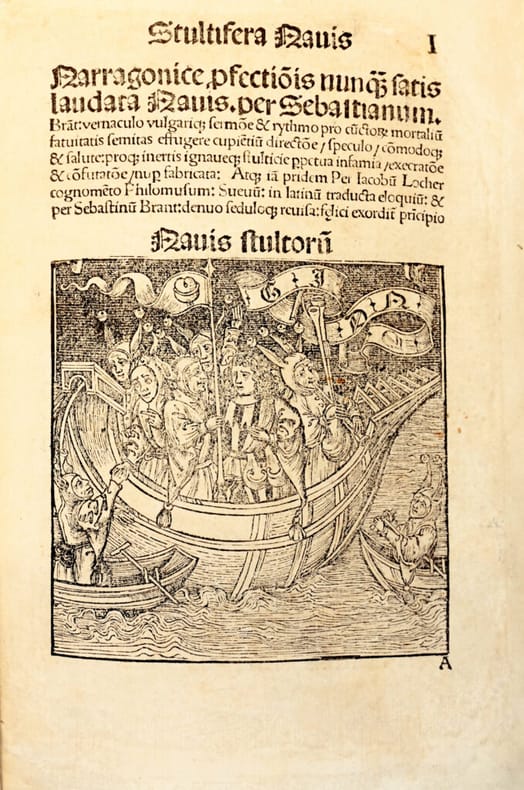 Stultifera Nauis
I
Narragonice ꝓfectiōis nunꝙ̄ satis
laudata Nauis. per Sebastianum.
Brāt: vernaculo vulgariqꝫ sermōe & rythmo pro cūctoꝝ mortaliū
fatuitatis semitas effugere cupiētiū directōe / speculo / cōmodoqꝫ
& salute: proqꝫ inertis ignaueqꝫ stulticie ꝑpetua infamia / execratōe
& cōfutatōe / nuꝑ fabricata: Atqꝫ iā pridem Per Iacobū Locher
cognomēto Philomusum: Sueuū: in latinū traducta eloquiū: &
per Sebastinū Brant: denuo seduloqꝫ reuisa: felici exorditur̄ pricipio
Nauis stultorū
A